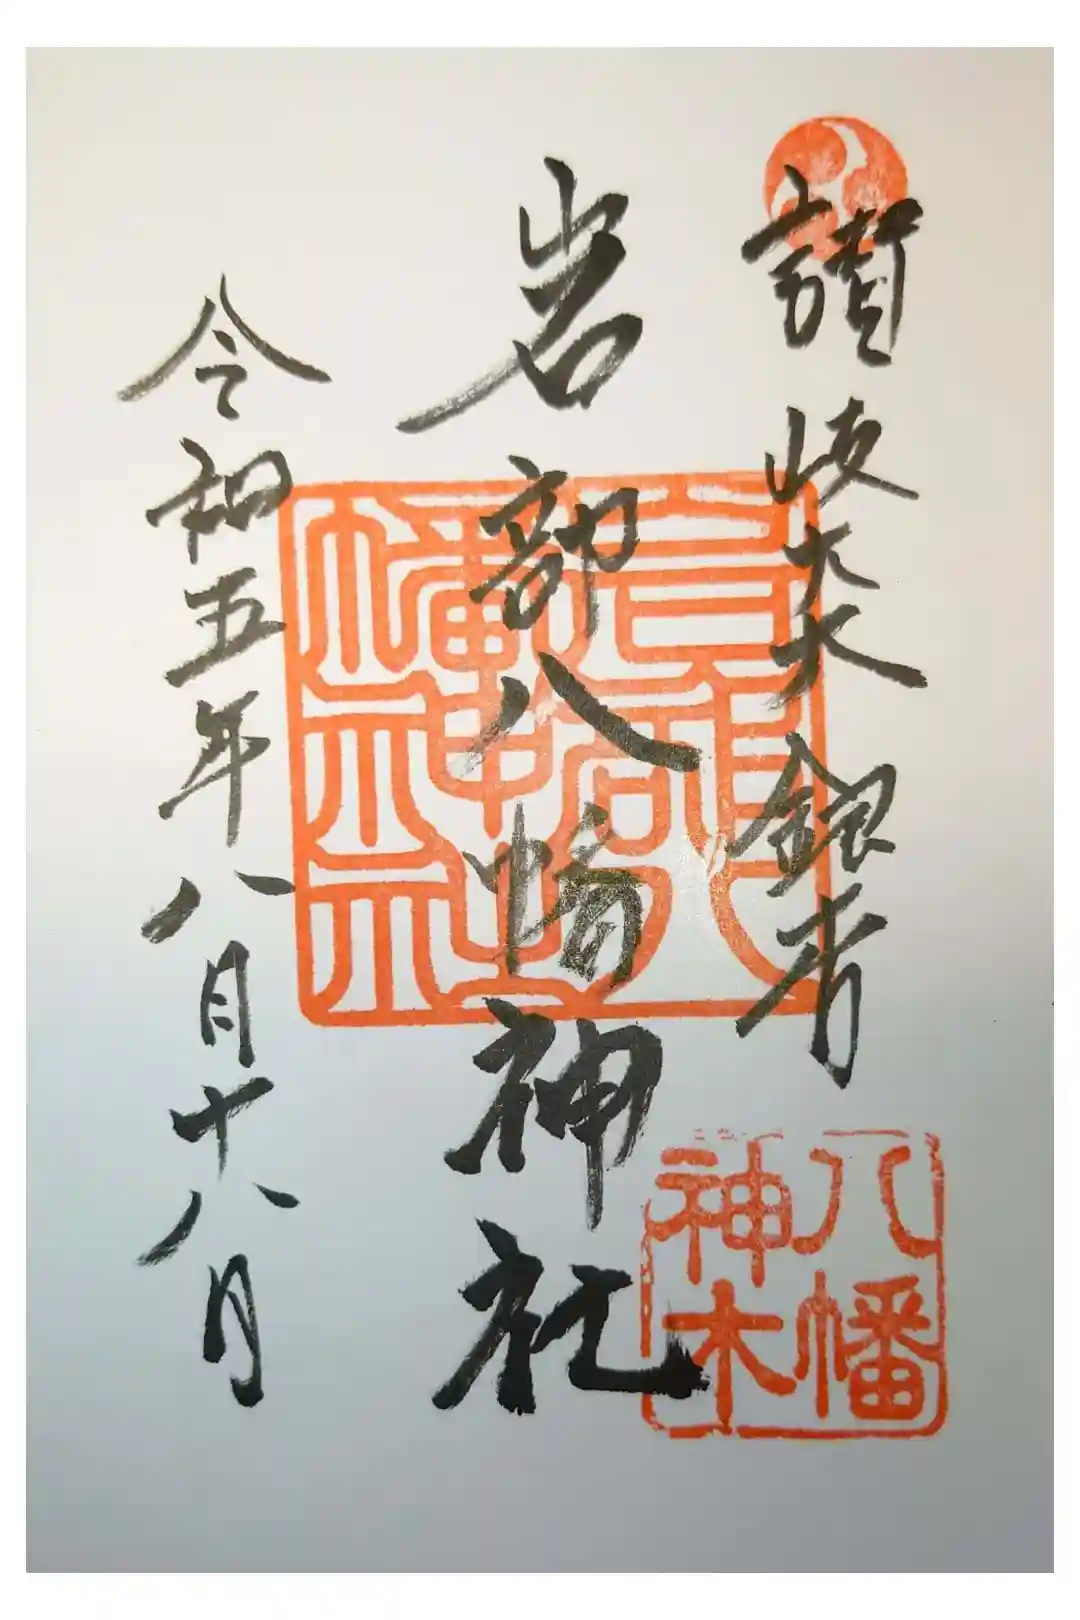 讃岐 銀杏
岩部八幡神社
令和五年八月十八日
八幡
神木